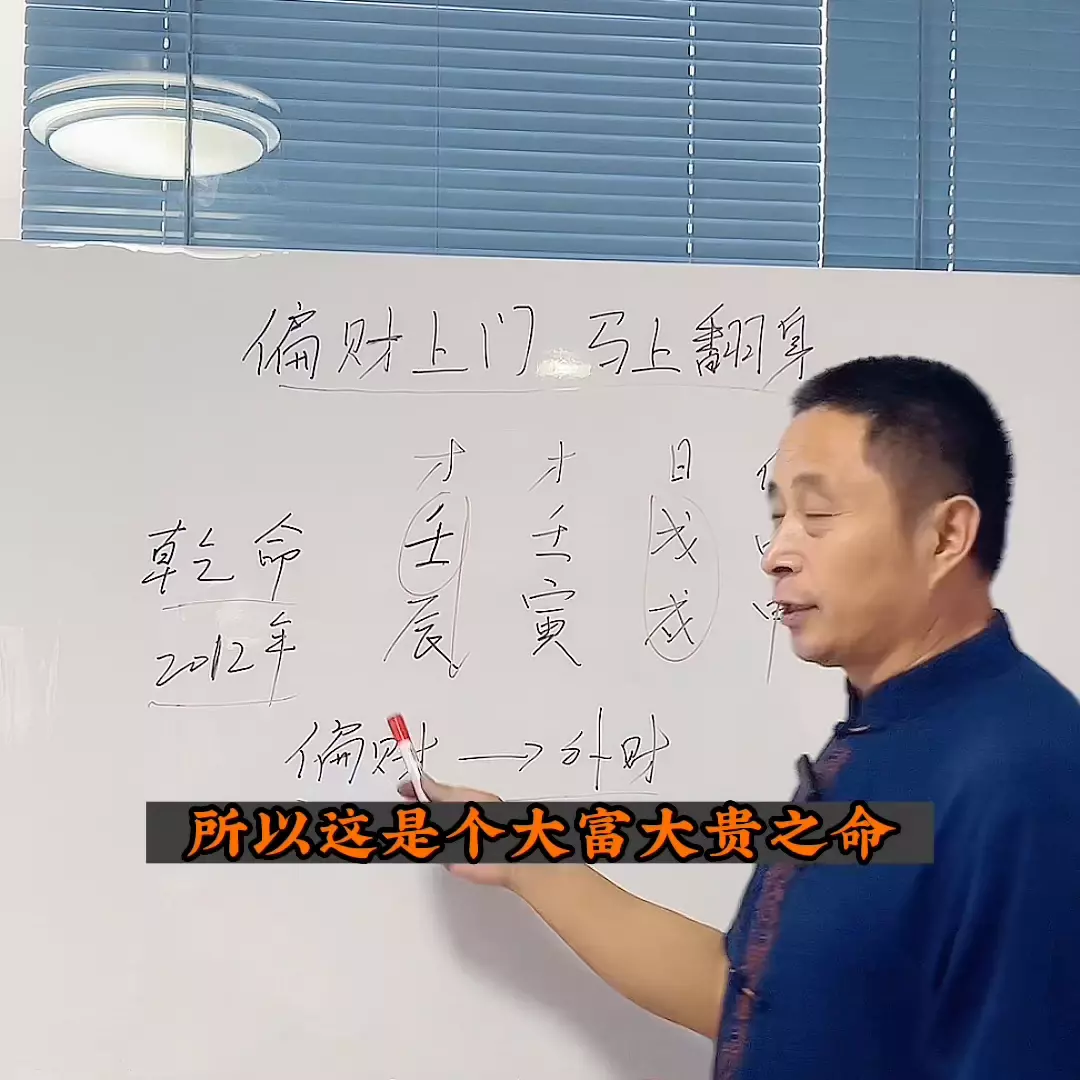 偏财上门 马上翻身
才 才 日
乾命 壬 壬 戊
辰 寅 戌
2012年
偏财→外财
所以这是个大富大贵之命